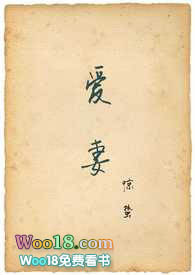 爱妻
惊蛰
Woo18.com
Woo18免费看书